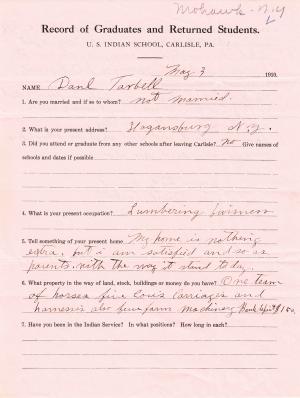 Mohawk - N.Y
Record of Graduates and Returned Students.
U. S. INDIAN SCHOOL, CARLISLE, PA.
May 3 1910.
NAME Danl Tarbell
1. Are you married and if so to whom? not married.
2. What is your present address? Hogansburg N.Y.
3. Did you attend or graduate from any other schools after leaving Carlisle? No Give names of
schools and dates if possible
4. What is your present occupation? Lumbering business
5. Tell something of your present home My home is nothing
extra, but i am satisfied and so is
parents with the way it stand to day.
6. What property in the way of land, stock, buildings or money do you have? One team
of horses five cows carriages and
harnesses also few farm machinery Bank $150.
7. Have you been in the Indian Service? In what positions? How long in each?